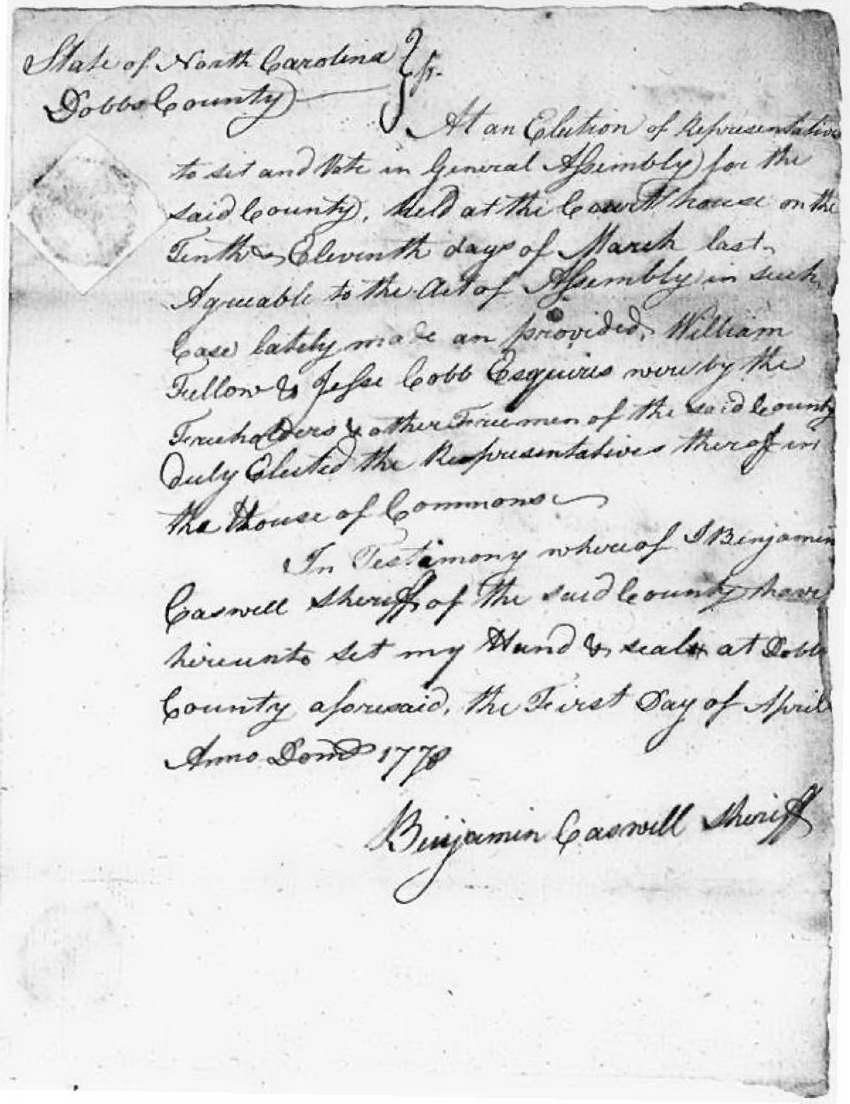 State of North Carolina } ss.
Dobbs County
At an Election of Representatives
to sit and Vote in General Assembly for the
said County, Held at the Court house on the
Tenth & Eleventh days of March last
Agreeable to the Act of Assembly in such
Case lately made an provided, William
Fellow & Jesse Cobb Esquires were by the
Freeholders & other Freemen of the said County
duly Elected the Representatives therof in
the House of Commons
In Testimony whereof I Benjamin
Caswell Sheriff of the said County have
hereunto set my Hand & seal at Dobbs
County aforesaid, the First Day of April
Anno Domo 1778
Benjamin Caswell Sheriff